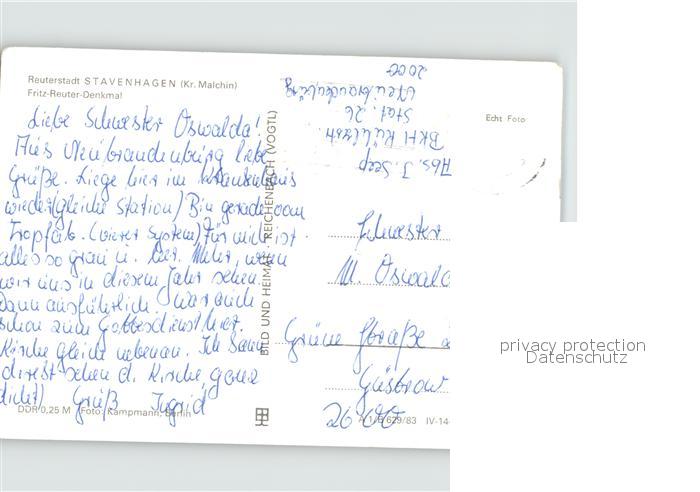 Reuterstadt STAVENHAGEN (Kr. Malchin)
Fritz-Reuter-Denkmal
Liebe Schwester Oswalda!
Aus Neubrandenburg liebe
Grüße. Liege hier im Krankenhaus
wieder (gleiche Station) Bin gerade vom
Tropf ab. (vierer System) Für mich ist
alles so grau u. leer. Mehr, wenn
wir uns in diesem Jahr sehen
dann ausführlich. War auch
schon zum Gottesdienst hier.
Kirche gleich nebenan. Ich kann
direkt sehen d. Kirche, ganz
dicht) Gruß Ingrid
DDR 0,25 M (Foto: Kampmann, Berlin
BILD UND HEIMAT REICHENBACH (VOGTL)
Abs. J. Seep
BKH Külzstr.
Stat. 26
Neubrandenburg
2000
Echt Foto
Schwester
M. Oswalda
Grüne Straße
Güstrow
2600
A 1/B 629/83 IV-14-
privacy protection
Datenschutz